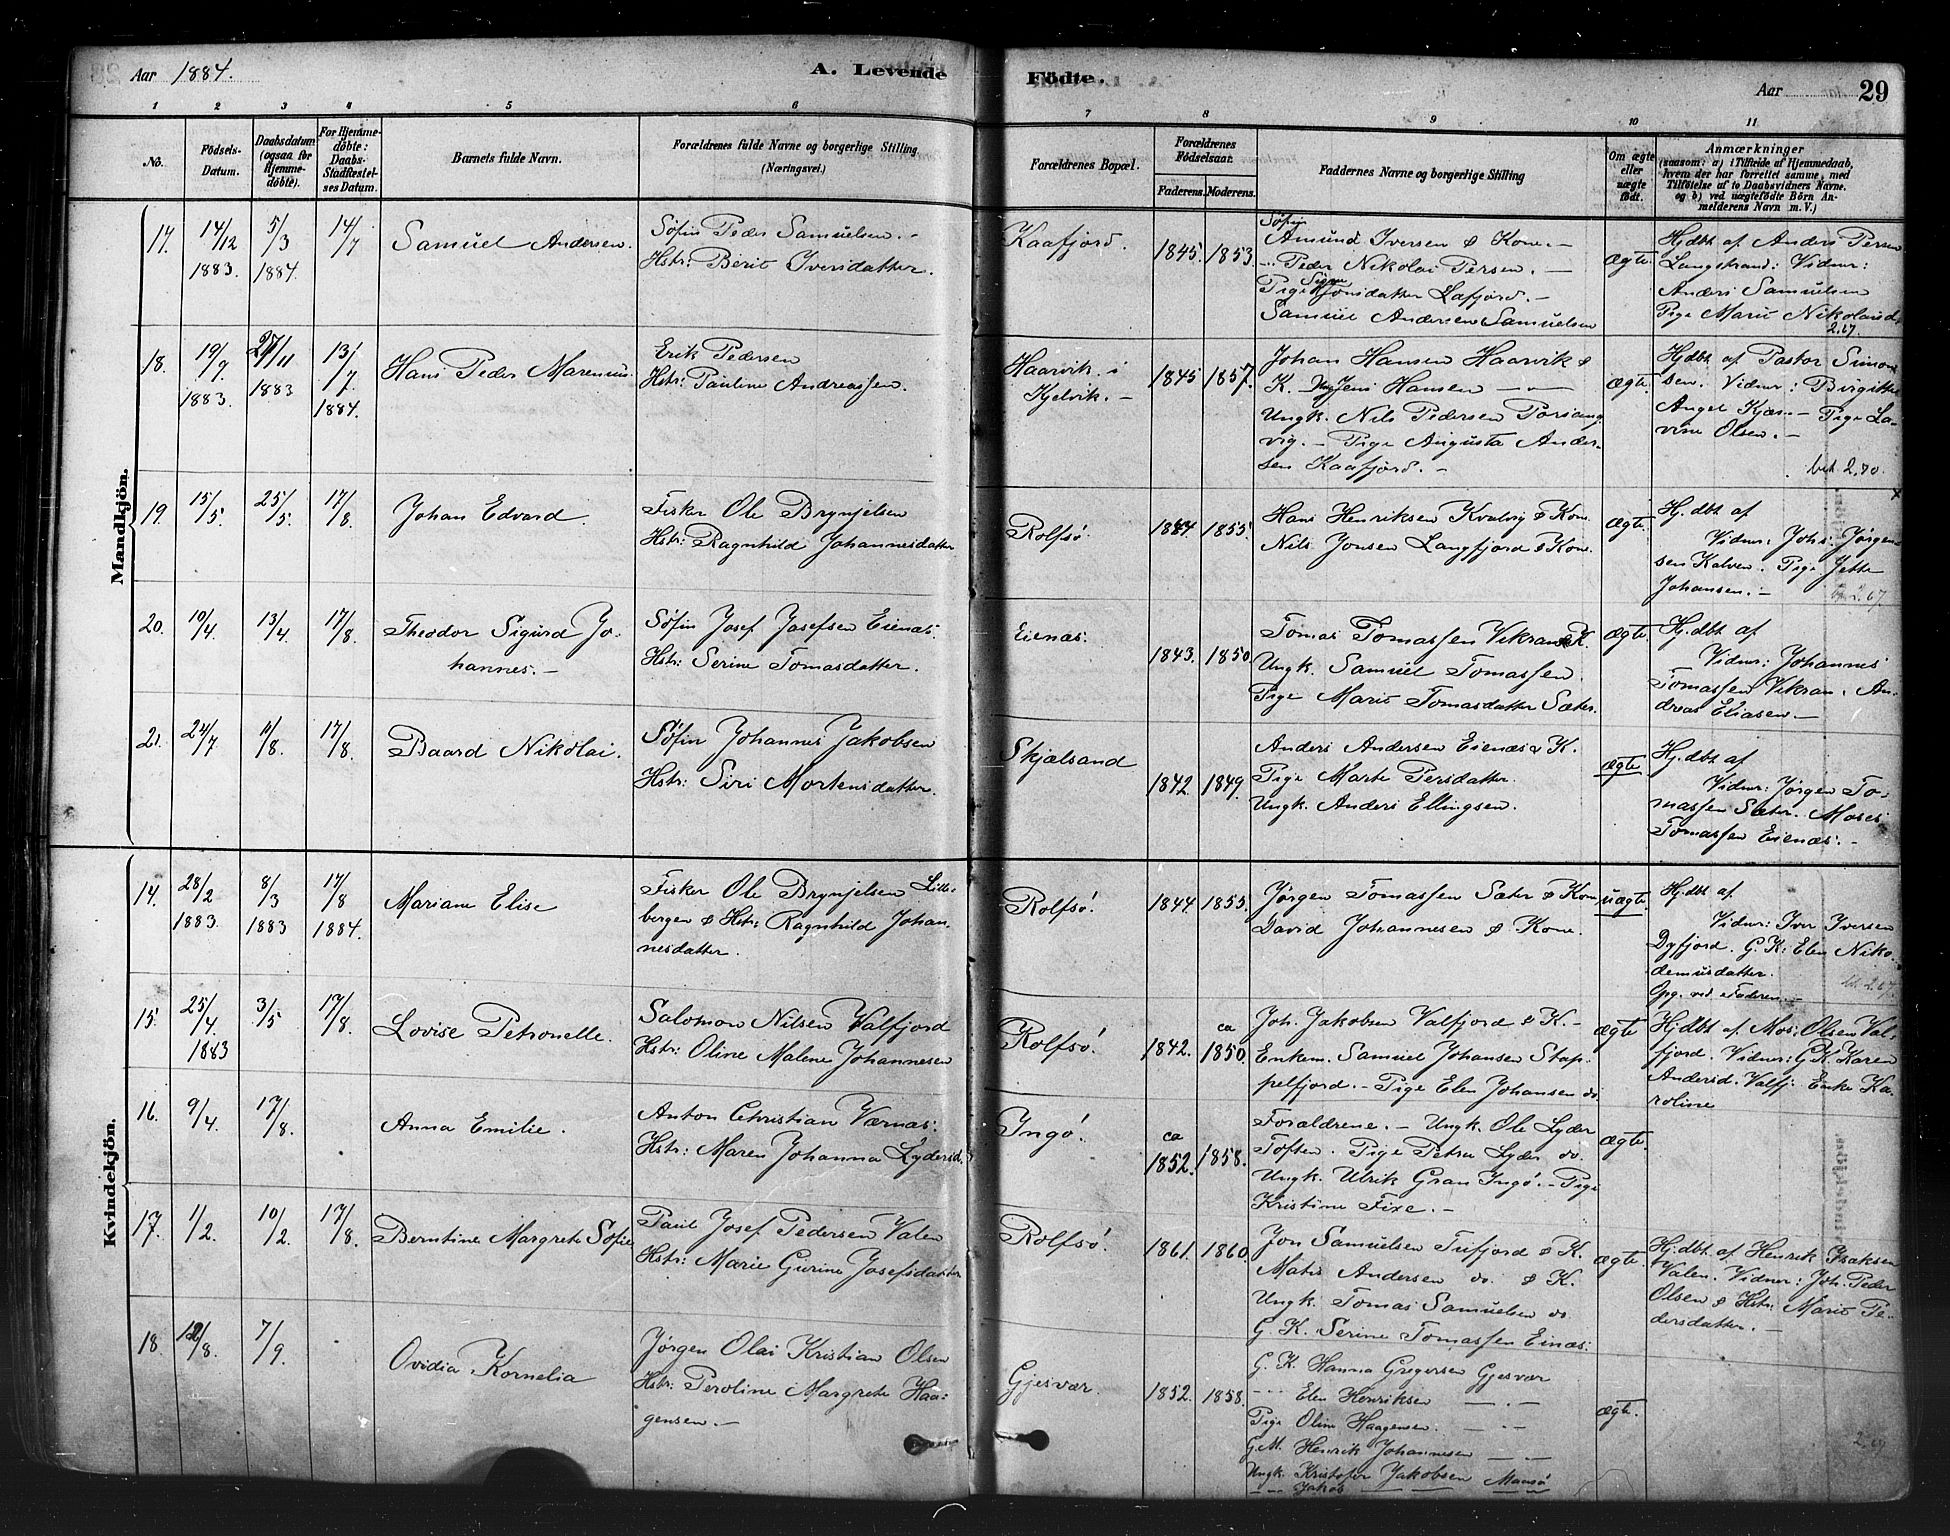 Aar 1884. A. Levende Födte. Aar 29
1 2 3 4 5 6 7 8 9 10 11
No.
Födsels-Datum.
Daabsdatum (ogsaa for Hjemme-döbte).
For Hjemme-döbte: Daabs-Stadfæstel-ses Datum.
Barnets fulde Navn.
Forældrenes fulde Navne og borgerlige Stilling. (Næringsvei.)
Forældrenes Bopæl.
Forældrenes Födselsaar.
Faderens. Moderens.
Faddernes Navne og borgerlige Stilling
Om ægte eller uægte födt.
Anmærkninger
(saasom: a) i Tilfælde af Hjemmedaab,
hvem der har forrettet samme, med
Tilföielse af to Daabsvidners Navne,
og b) ved uægtefödte Börn An-
melderens Navn m. V.)
Mandkjön.
17. 14/12 1883. 5/3 1884. 14/7
Samuel Andersen.
Søfin Peder Samuelsen.
Hstr: Berit Iversdatter.
Kaafjord.
1845. 1853.
Søfin
Amund Iversen & Kone.
Peder Nikolai Persen.
Pige Signe Jonsdatter Lafjord.
Samuel Andersen Samuelsen
ægte.
Hjdbt af Anders Persen
Langstrand: Vidner:
Anders Samuelsen
Pige Marit Nikolaisd.
2.67.
18. 19/9 1883. 27/11 1883 13/7 1884.
Hans Peder Marenius
Erik Pedersen
Hstr: Pauline Andreassen.
Haarvik i
Kjelvik.
1845 1857.
Johan Hansen Haarvik &
K. Ungk Jens Hansen
Ungk. Nils Pedersen Porsang
vig. Pige Augusta Ander-
sen Kaafjord.
ægte.
Hjdbt af Pastor Simon
sen. Vidner: Birgitte
Angel Kjær. Pige La-
vine Olsen.
bet 2.70.
19. 15/5. 25/5. 17/8.
Johan Edvard.
Fisker Ole Brynjelsen
Hstr: Ragnhild Johannesdatter
Rolfsø.
1844. 1855.
Hans Henriksen Kvalvig & Kone
Nils Jonsen Langfjord & Kone.
ægte.
Hj.dbt af
Vidner: Johs: Jørgen-
sen Kalven. Pige Jette
Johansen.
2.67.
20. 10/4. 13/4. 17/8.
Theodor Sigurd Jo-
hannes.
Søfin Josef Josefsen Eienæs.
Hstr: Serine Tomasdatter.
Eienæs.
1843. 1850.
Tomas Tomassen Vikran & K.
Ungk. Samuel Tomassen.
Pige Marit Tomasdatter Sæter.
ægte.
Hj.dbt af
Vidner: Johannes
Tomassen Vikran. An-
dreas Eliasen
21. 24/7 11/8. 17/8.
Baard Nikolai.
Søfin Johannes Jakobsen
Hstr: Siri Mortensdatter.
Skjælsand
1842. 1849.
Anders Andersen Eienæs & K.
Pige Marte Persdatter.
Ungk. Anders Ellingsen.
ægte.
Hj.dbt af
Vidner: Jørgen To-
massen Sæter. Moses
Tomassen Eienæs.
Kvindekjön.
14. 28/2 1883. 8/3 1883 17/8 1884.
Mariane Elise
Fisker Ole Brynjelsen Lille-
bergen & Hstr: Ragnhild Johan-
nesdatter.
Rolfsø.
1844. 1855.
Jørgen Tomassen Sæter & Kone
David Johannesen & Kone.
uægte.
Hj.dbt af
Vidner: Iver Iversen
Dyfjord. G.K: Elen Niko-
demusdatter.
Opg. ved Faderen.
bet. 2.67.
15. 25/4. 1883 3/5 17/8.
Lovise Petronelle.
Salomon Nilsen Valfjord
Hstr: Oline Malene Johannesen
Rolfsø.
1842. ca 1850.
Joh. Jakobsen Valfjord & K.
Enkem. Samuel Johansen Stap-
pelfjord. Pige Elen Johansen do.
ægte
Hj.dbt af Mos: Olsen Val-
fjord. Vidner: G.K. Karen
Andersd. Valfj: Enke Ka-
roline
16. 9/4. 17/8.
Anna Emilie.
Anton Christian Værnæs.
Hstr: Maren Johanna Lydersd.
Ingø.
ca 1852. 1858.
Forældrene. Ungk. Ole Lyder
Toften. Pige Petra Lyder do.
Ungk. Ulrik Gran Ingø. Pige
Kristine Fixe.
ægte.
17. 1/2. 10/2. 17/8.
Berntine Margrete Sofie
Paul Josef Pedersen Valen
Hstr: Marie Gurine Josefsdatter
Rolfsø.
1861. 1860.
Jon Samuelsen Trifjord & K.
Matis Andersen do. & K.
Ungk. Tomas Samuelsen do.
G. K. Serine Tomassen Einæs.
ægte.
Hj.dbt. af Henrik Isaksen
Valen. Vidner: Joh. Peder
Olsen & Hstr: Marit Pe-
dersdatter.
18. 12/8. 7/9.
Ovidia Kornelia
Jørgen Olai Kristian Olsen
Hstr: Peroline Margrete Haa-
gensen.
Gjesvær.
1852. 1858.
G. K. Hanna Gregersen Gjesvær
Elen Henriksen
Pige Oline Haagensen
G.M. Henrik Johannesen
Ungk. Kristofer Jakobsen Maasø
Jakob
ægte.
2.67